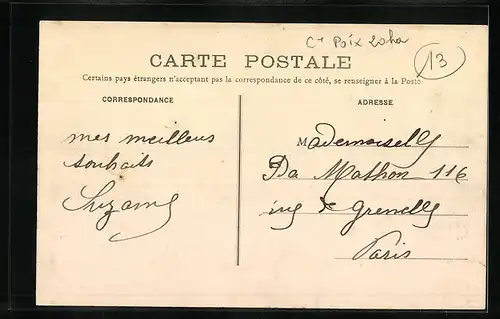 Cte Poix 20ha
13
CARTE POSTALE
Certains pays étrangers n'acceptant pas la correspondance de ce côté, se renseigner à la Poste
CORRESPONDANCE
ADRESSE
mes meilleurs
souhaits
Suzanne
Mademoiselle
Da Mathon 116
rue de Grenelle
Paris